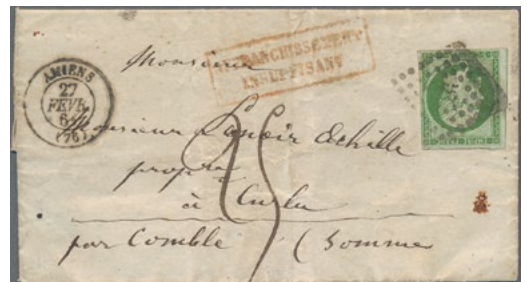 AMIENS
27
FEVR.
(76)
AFFRANCHISSEMENT
INSUFFISANT
Monsieur
Monsieur Lenoir Achille
propre
à Curlu
par Comble (Somme
25